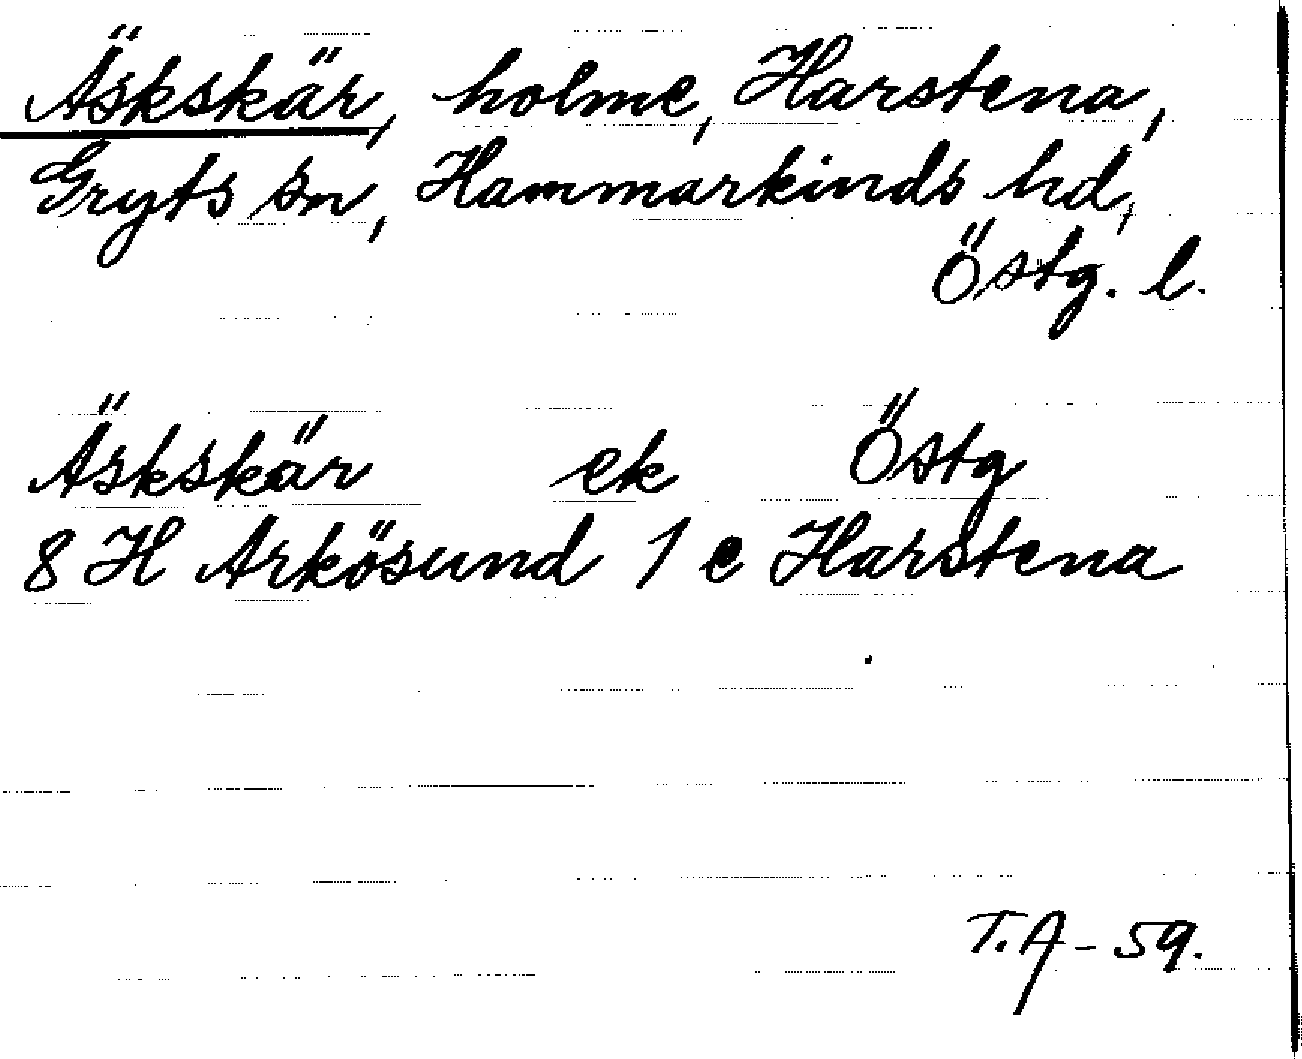 Äskskär, holme, Harstena,
Gryts sn, Hammarkinds hd,
Östg. l.
Äskskär ek Östg
8 H Arkösund 1 e Harstena
T.A - 59.